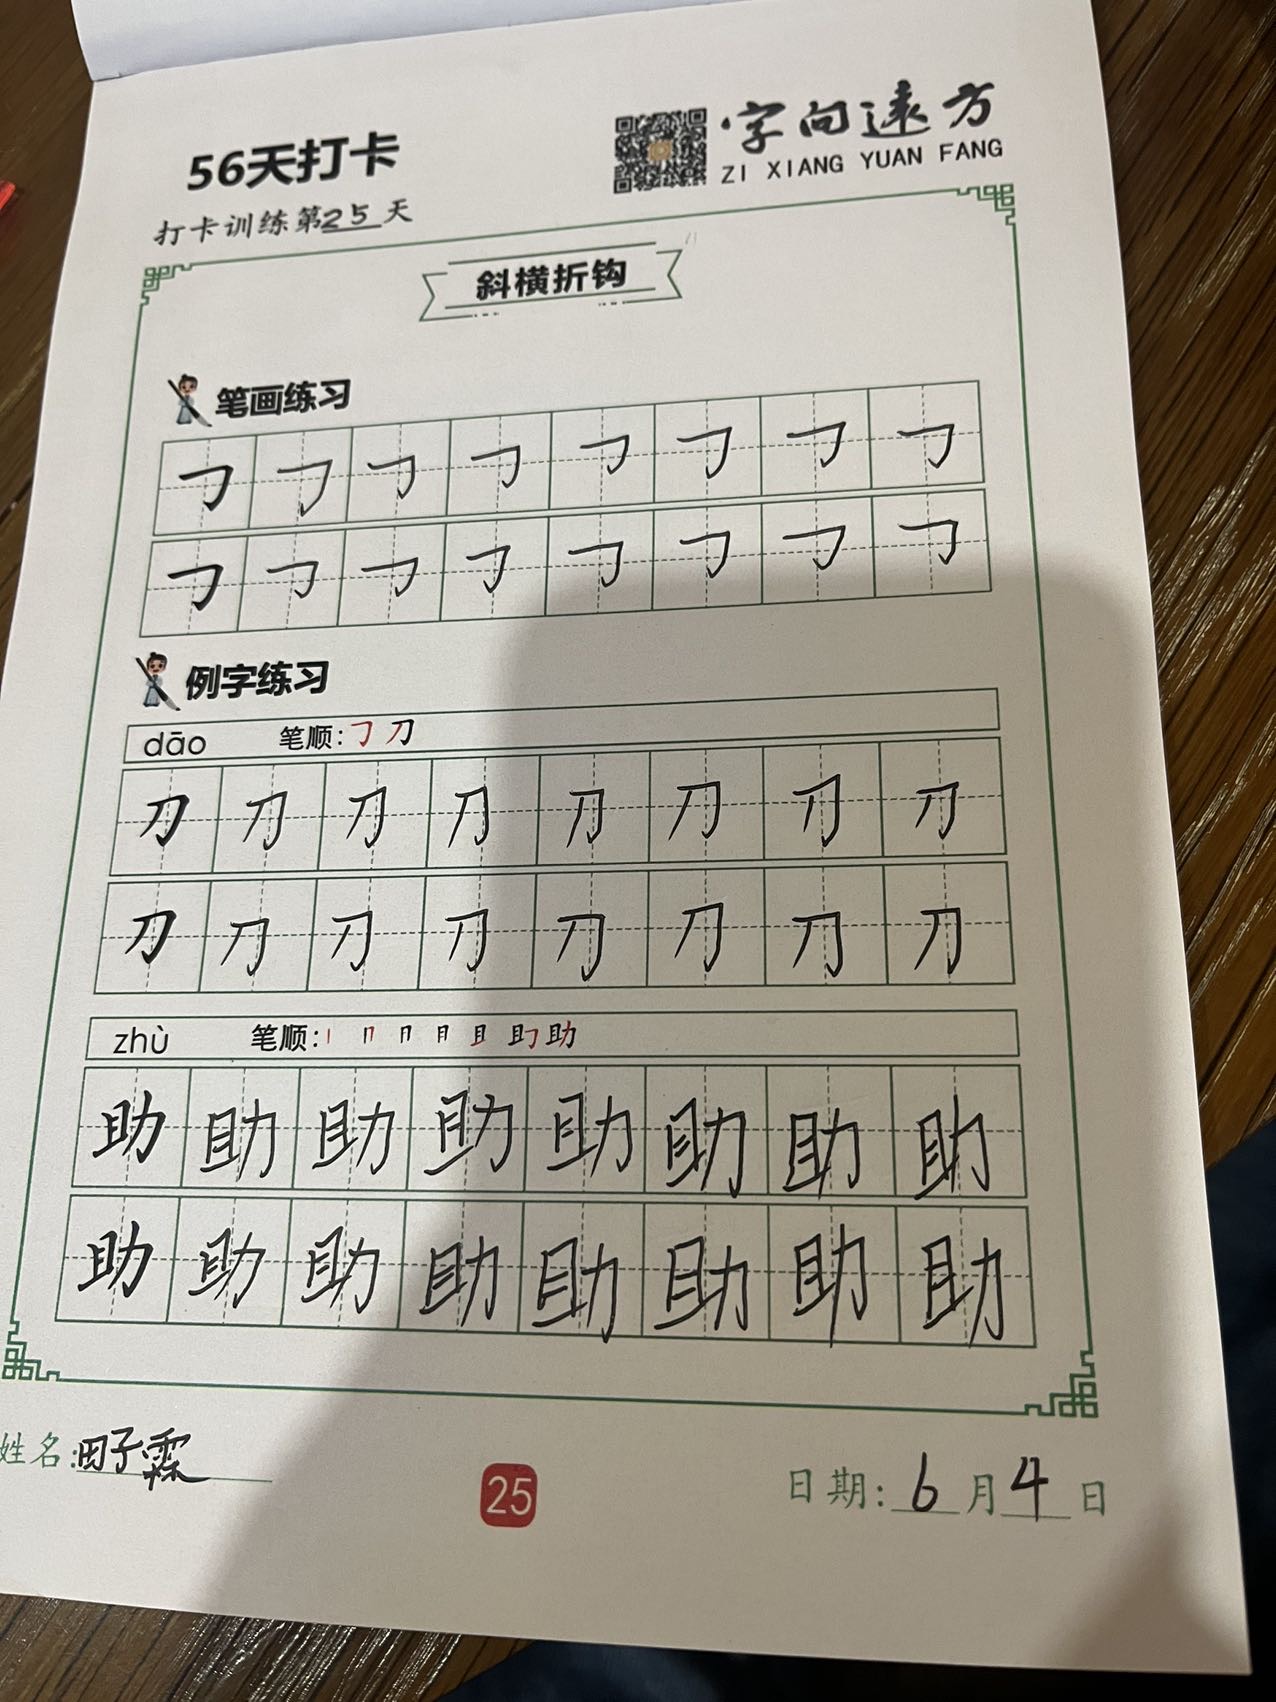 56天打卡
字向远方
ZI XIANG YUAN FANG
打卡训练第25天
斜横折钩
笔画练习
㇆㇆㇆㇆㇆㇆㇆㇆
㇆㇆㇆㇆㇆㇆㇆㇆
例字练习
dāo 笔顺:㇆刀
刀刀刀刀刀刀刀刀
刀刀刀刀刀刀刀刀
zhù 笔顺:
助助助助助助助助
助助助助助助助助
姓名:田子霖
25
日期:6月4日